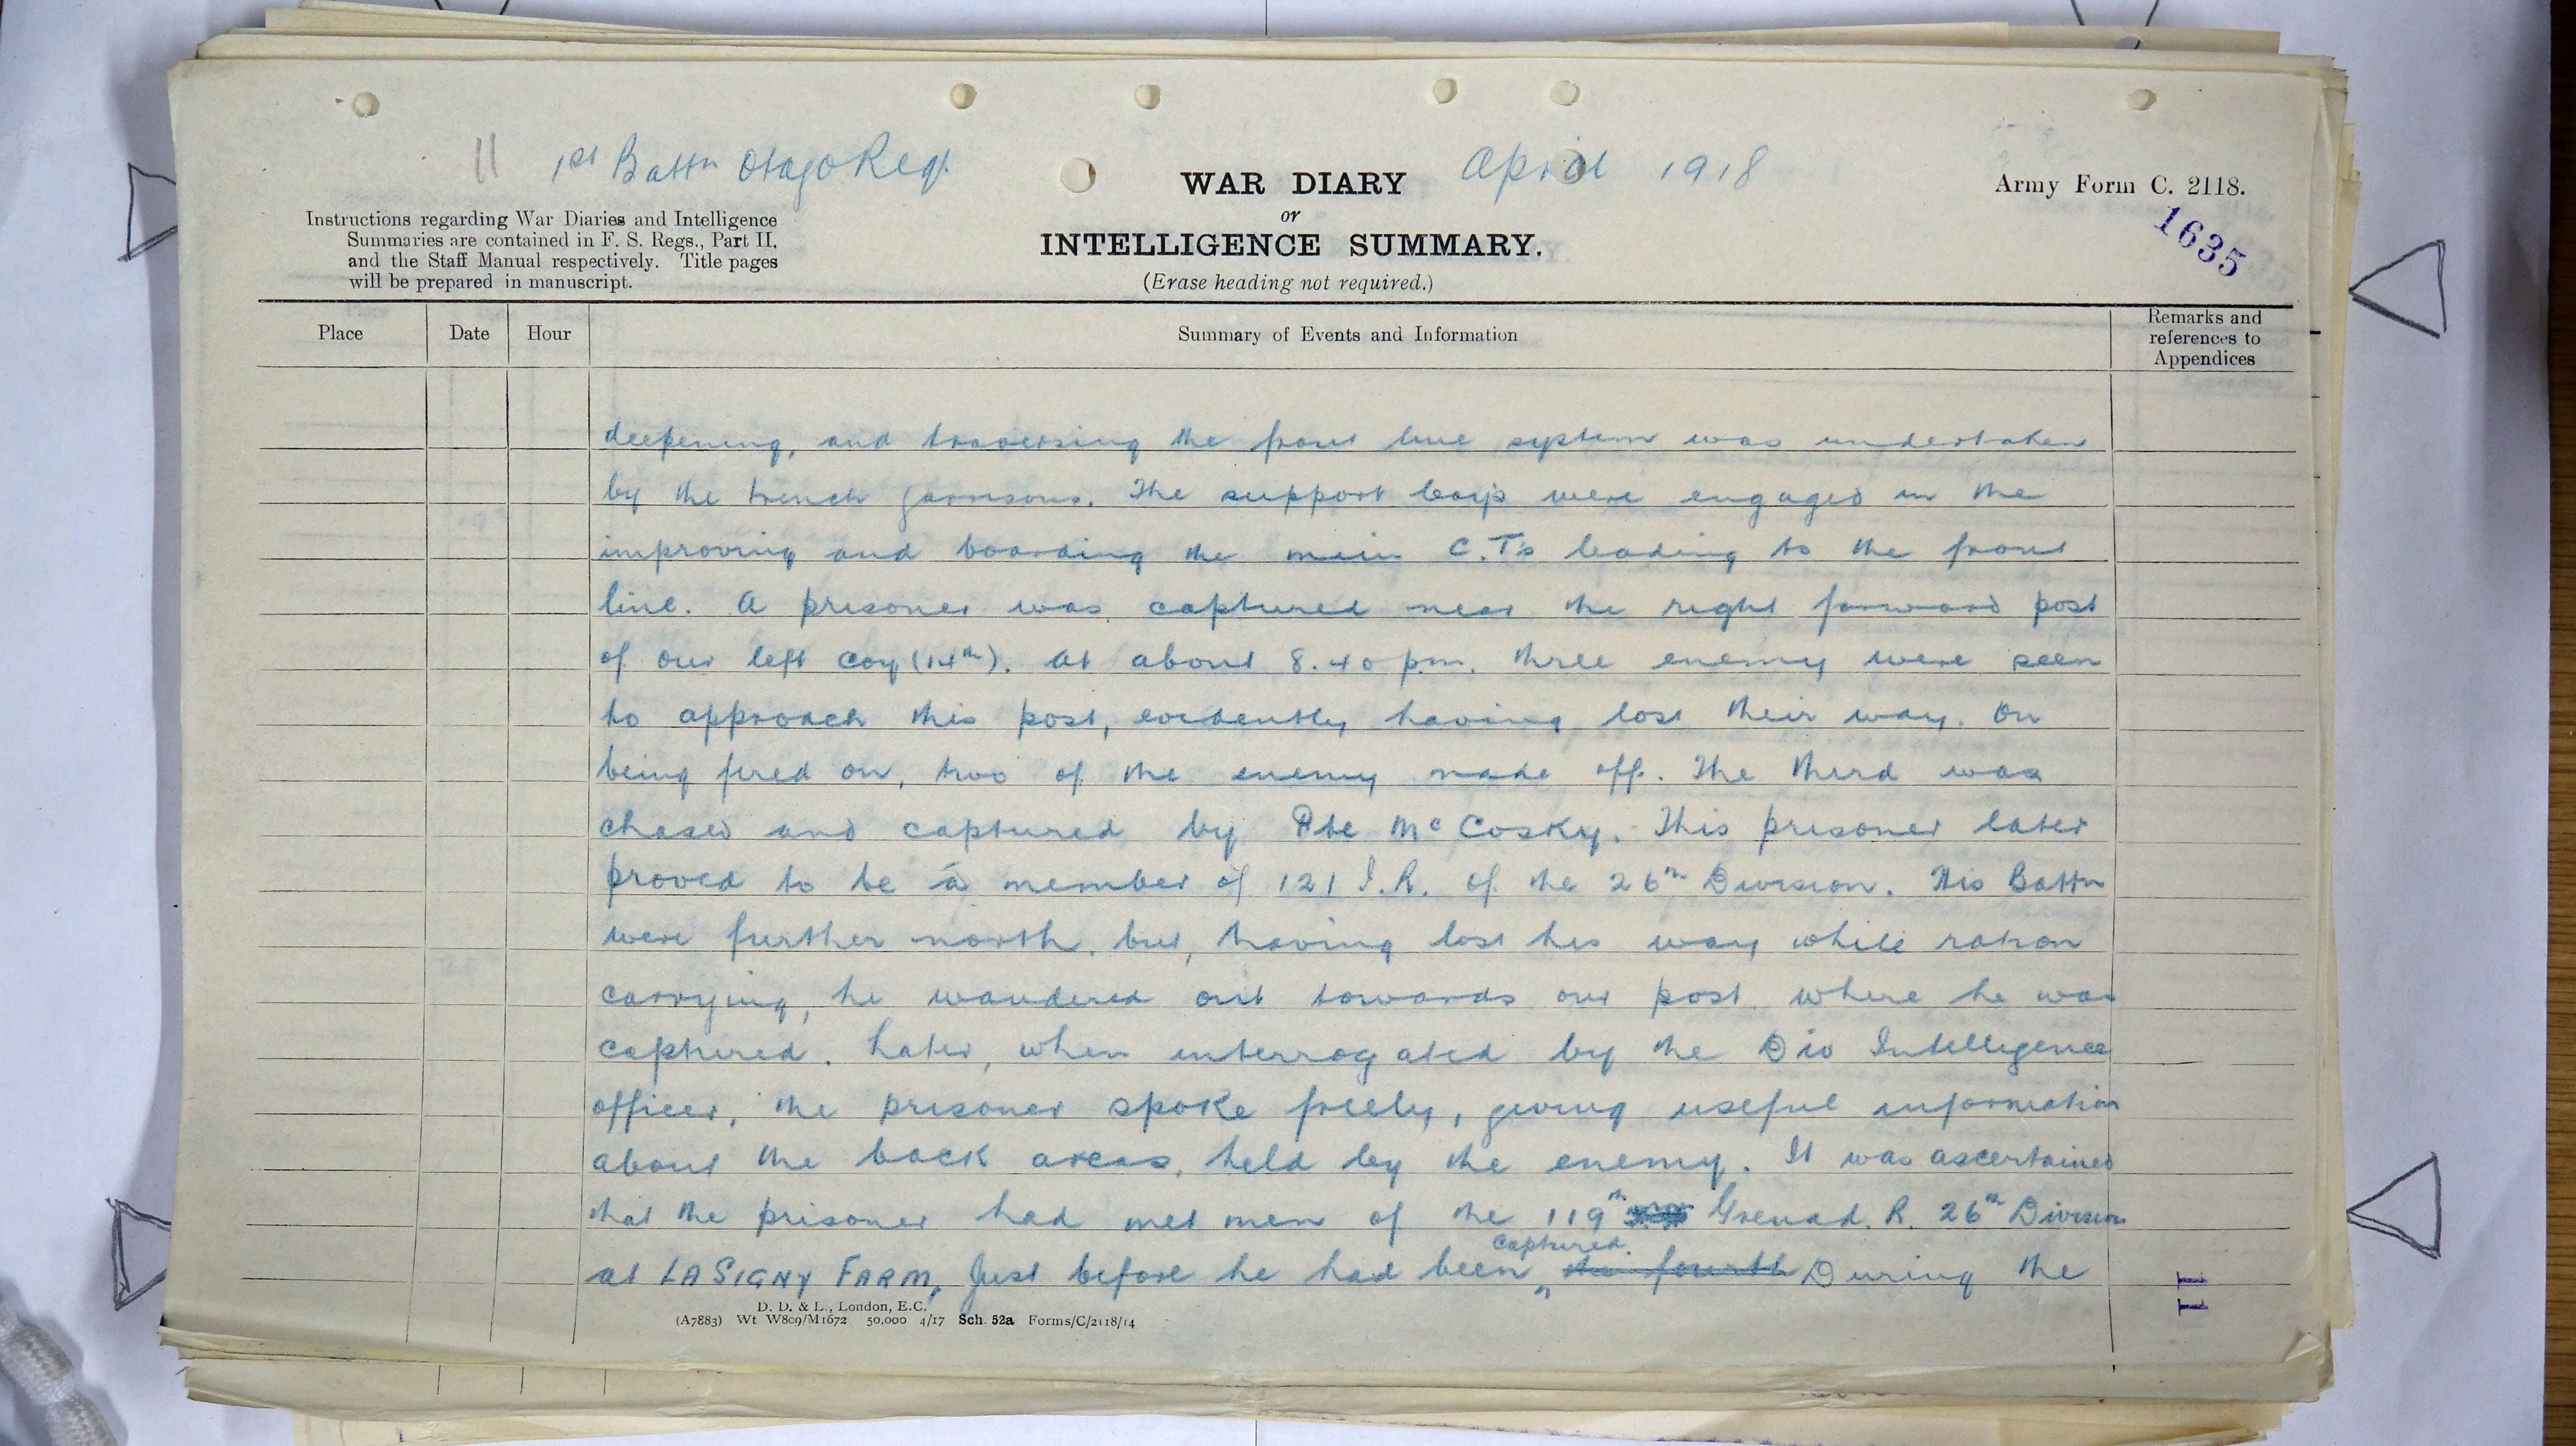 11 1st Battn Otago Reg. April 1918
WAR DIARY
or
INTELLIGENCE SUMMARY.
(Erase heading not required.)
Army Form C. 2118.
1635
Instructions regarding War Diaries and Intelligence
Summaries are contained in F. S. Regs., Part II,
and the Staff Manual respectively. Title pages
will be prepared in manuscript.
Place Date Hour Summary of Events and Information Remarks and
references to
Appendices
deepening, and traversing the front line system was undertaken
by the trench garrisons. The support coys were engaged in the
improving and boarding the main C.T's leading to the front
line. A prisoner was captured near the right forward post
of our left coy (14th). At about 8.40 pm. three enemy were seen
to approach this post, evidently having lost their way. On
being fired on, two of the enemy made off. The third was
chased and captured by Pte McCosky. This prisoner later
proved to be a member of 121 I.R. of the 26th Division. His Battn
were further north. but, having lost his way while ration
carrying, he wandered out towards our post where he was
captured. Later, when interrogated by the Div Intelligence
officer, the prisoner spoke freely, giving useful information
about the back areas, held by the enemy. It was ascertained
that the prisoner had met men of the 119th Grenad. R. 26th Division
at LA SIGNY FARM, just before he had been captured. the fourth During the
D. D. & L., London, E.C.
(A7883) Wt W809/M1672 50,000 4/17 Sch. 52a Forms/C/2118/14
11